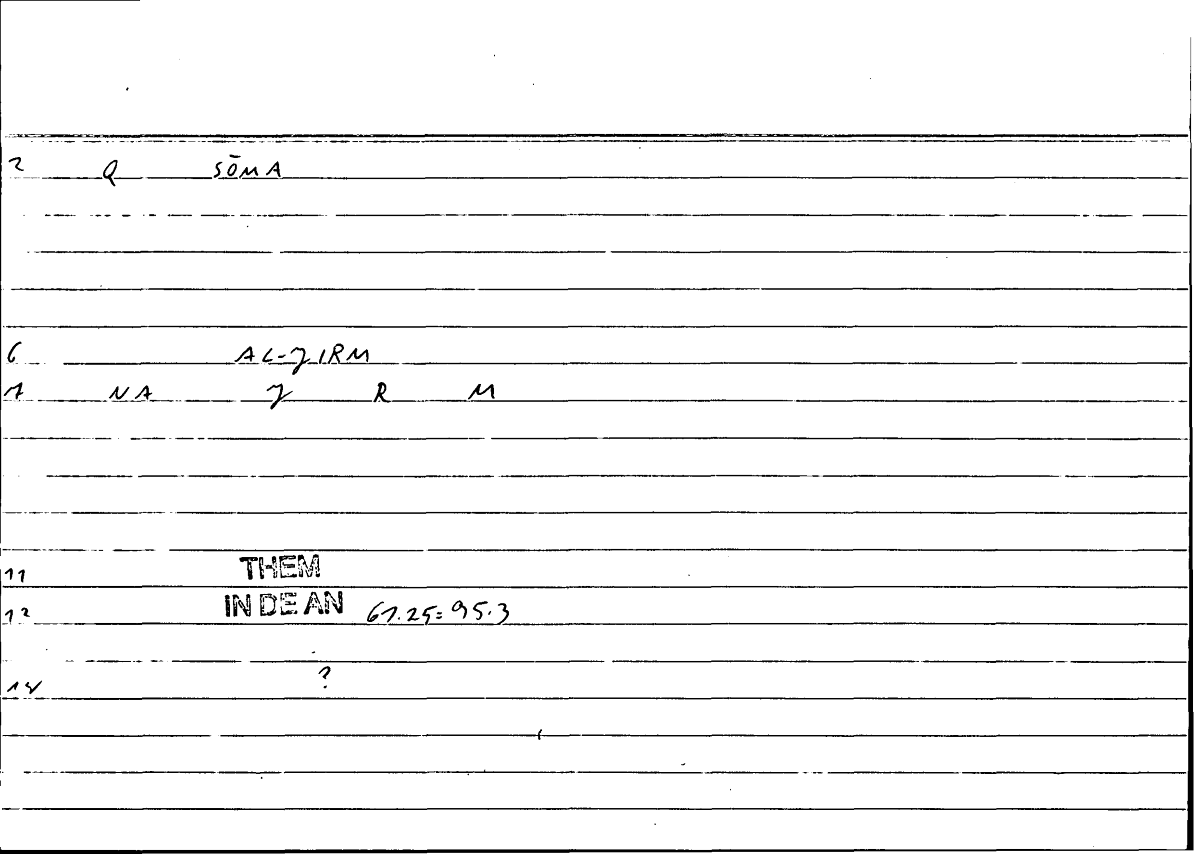 2 Q SŌMA
6 AL-JIRM
7 NA J R M
11 THEM
12 IN DE AN 67.25=95.3
14 ?